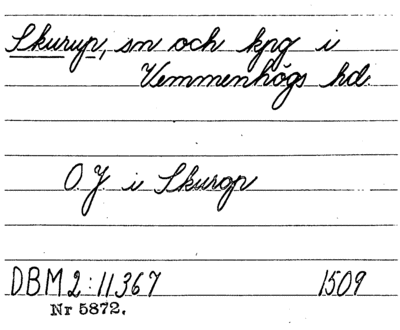 Skurup, sn och kpg i
Vemmenhögs hd.
O. J i Skurop
DBM 2:11367 1509
Nr 5872.